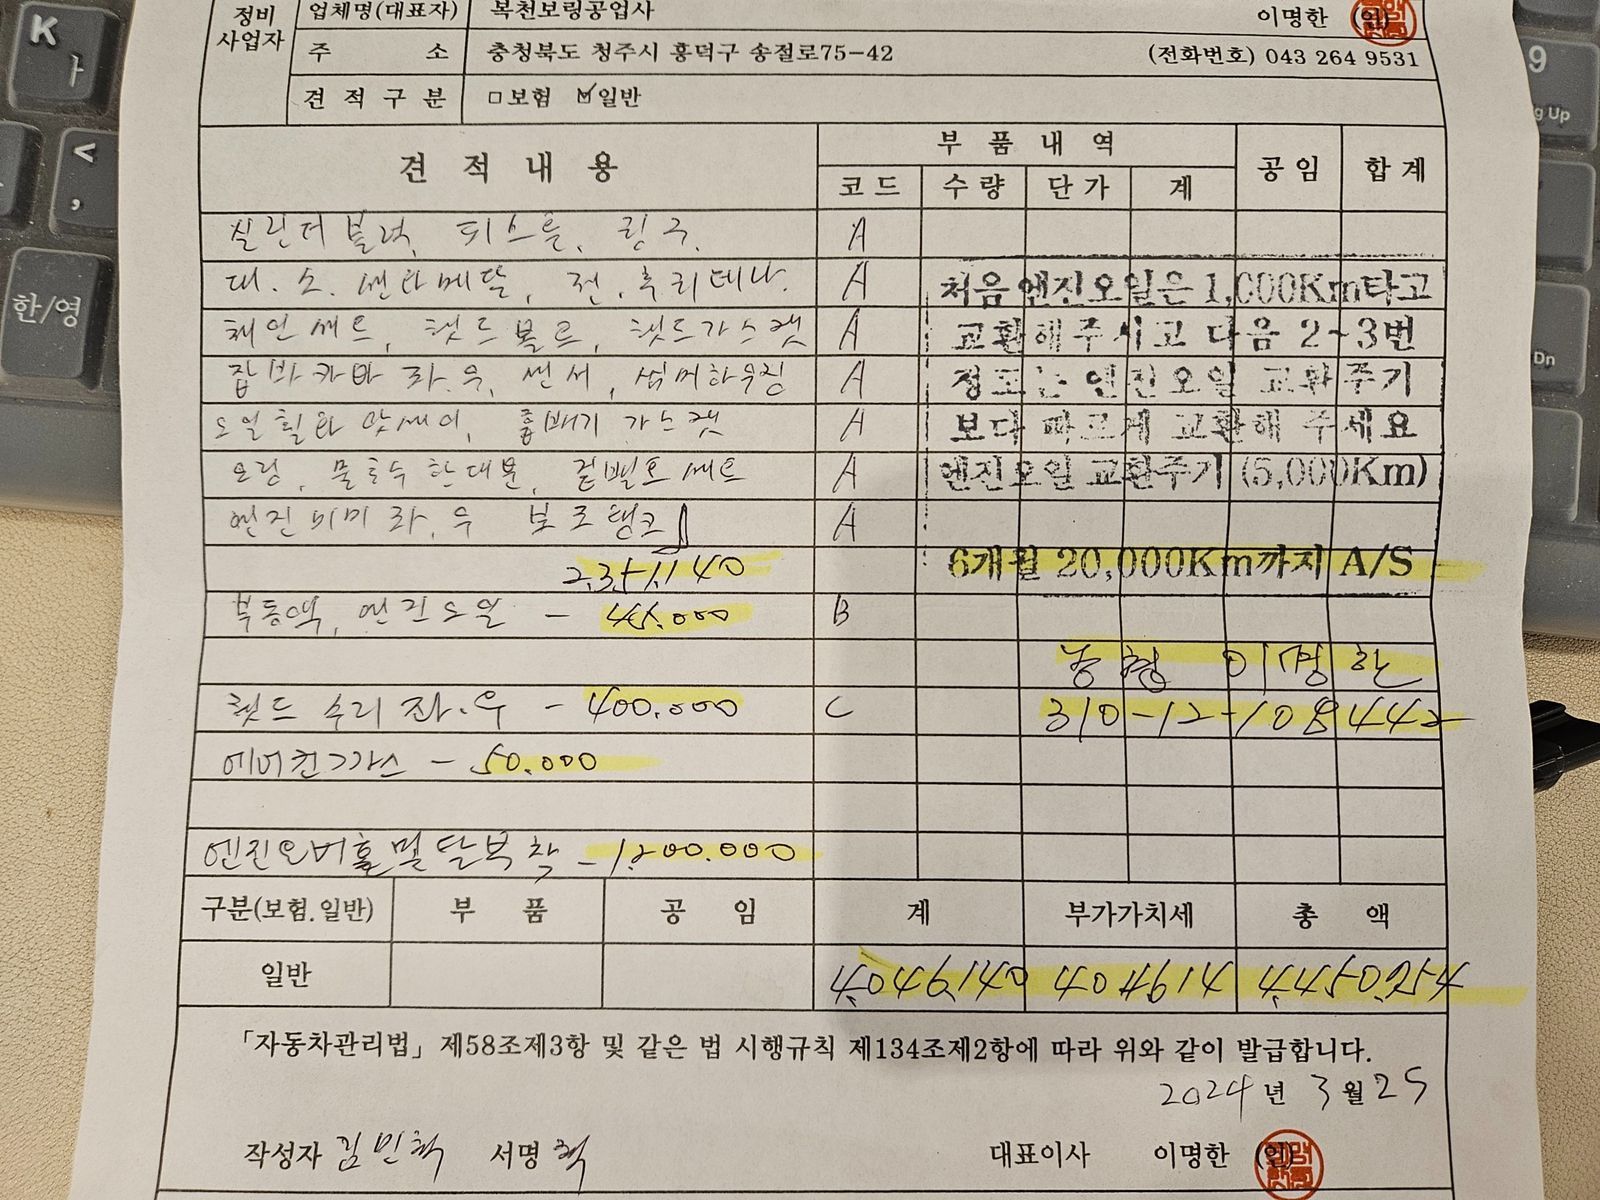 정비 사업자
업체명(대표자) 복천보링공업사 이명한 (인)
주 소 충청북도 청주시 흥덕구 송절로75-42 (전화번호) 043 264 9531
견 적 구 분 □보험 ☑일반
견 적 내 용 부 품 내 역 공 임 합 계
코드 수량 단가 계
실린더블럭, 피스톤, 링구, A
대.소.쎈타메달, 전.후리테나. A
체인쎄트, 헷드볼트, 헷드가스켓 A
잠바카바 좌.우, 쎈서, 썸머하우징 A
오일휠타앗세이, 흡배기 가스켓 A
오링, 물호수한대분, 겉벨트쎄트 A
엔진미미 좌.우 보조탱크 A
처음엔진오일은 1,000Km타고
교환해주시고 다음 2~3번
정도는 엔진오일 교환주기
보다 빠르게 교환해 주세요
엔진오일 교환주기 (5,000Km)
6개월 20,000Km까지 A/S
2.351.140
부동액, 엔진오일 - 45.000 B
농협 이명한
헷드 수리 좌.우 - 400.000 C
310-12-108442
에어컨가스 - 50.000
엔진오버홀및탈부착 - 1.200.000
구분(보험.일반) 부 품 공 임 계 부가가치세 총 액
일반 4046140 404614 4450754
「자동차관리법」 제58조제3항 및 같은 법 시행규칙 제134조제2항에 따라 위와 같이 발급합니다.
2024년 3월 25
작성자 김민혁 서명 혁 대표이사 이명한 (인)
K
ㅏ
<
,
한/영
9
Pg Up
Dn